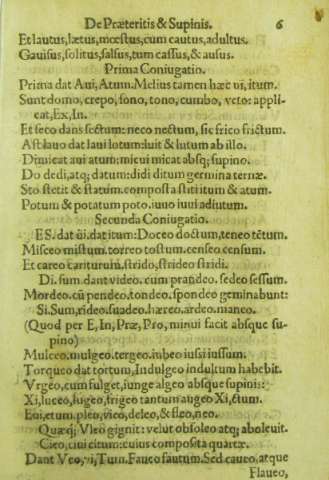 De Præteritis & Supinis. 6
Et lautus, lætus, mœstus, cum cautus, adultus.
Gauisus, solitus, salsus, tum cassus, & ausus.
Prima Coniugatio.
Prima dat Aui, Atum. Melius tamen hæc ui, itum.
Sunt domo, crepo, sono, tono, cumbo, veto: appli-
cat, Ex, In.
Et seco dans sectum: neco nectum, sic frico frictum.
Ast lauo dat laui lotum: luit & lutum ab illo.
Dimicat aui atum: micui micat absq; supino.
Do dedi, atq; datum: didi ditum germina ternæ.
Sto stetit & statum. composta stiti itum & atum.
Potum & potatum poto. iuuo iuui adiutum.
Secunda Coniugatio.
ES. dat ûi. dat itum: Doceo doctum, teneo tẽtum.
Misceo mistum. torreo tostum. censeo censum.
Et careo cariturum. strido, strideo stridi.
Di. sum. dant video. cum prandeo. sedeo sessum.
Mordeo. cũ pendeo, tondeo. spondeo geminabunt:
Si. Sum, rideo. suadeo. hæreo. ardeo. maneo.
(Quod per E, In, Præ, Pro, minui facit absque su-
pino)
Mulceo. mulgeo. tergeo. iubeo iussi iussum.
Torqueo dat tortum, Indulgeo indultum habebit.
Vrgeo, cum fulget, iunge algeo absque supinis:
Xi, luceo, lugeo, frigeo tantum augeo Xi, ctum.
Eui, etum. pleo, vieo, deleo, & fleo, neo.
Quæq; Vleo gignit: velut obsoleo atq; aboleuit.
Cieo, ciui citum: cuius composita quartæ.
Dant Veo, vi, Tum. Faueo fautum. Sed caueo, atque
Flaueo,